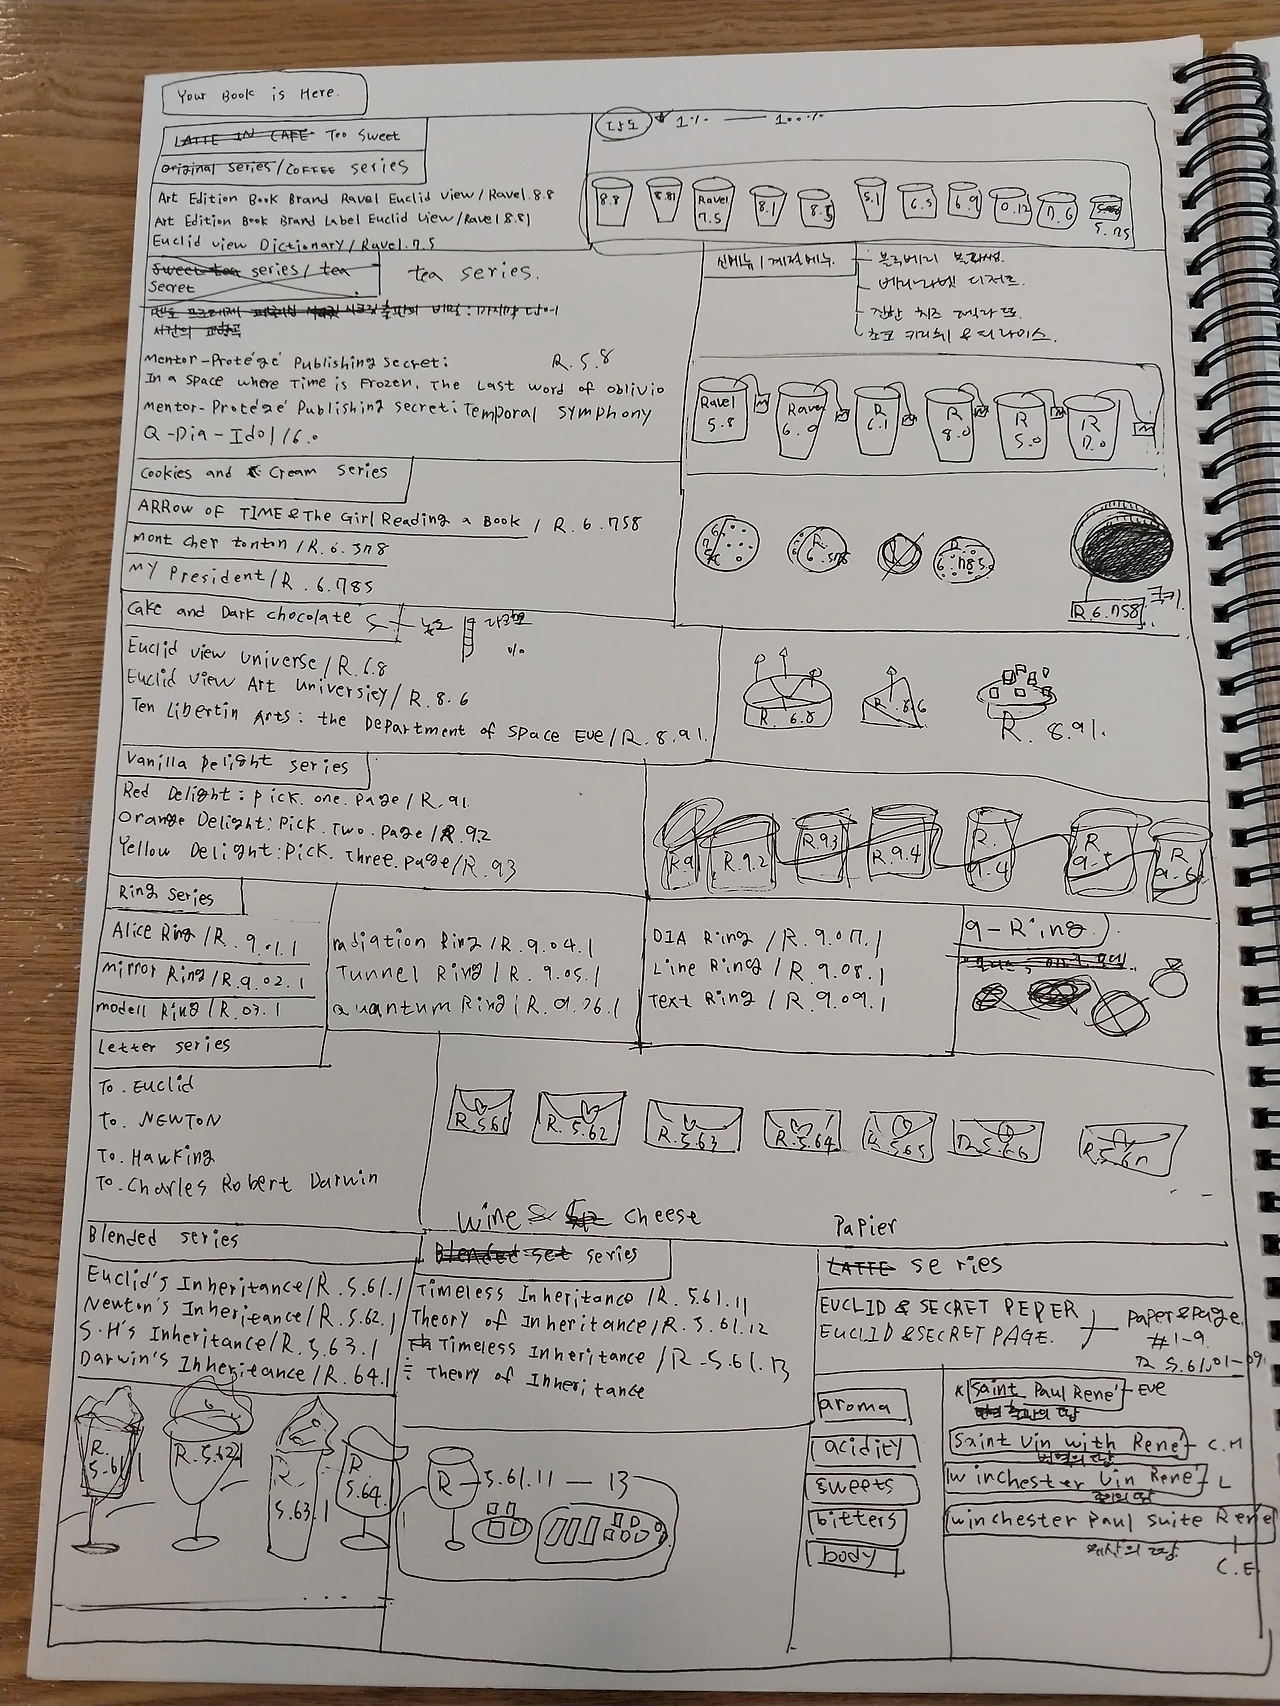 Your Book is Here.
LATTE IN CAFE Too Sweet
Original series/COFFEE series
당도 1% — 100%
Art Edition Book Brand Ravel Euclid View/Ravel.8.8
Art Edition Book Brand Label Euclid View/Ravel 8.81
Euclid view Dictionary/Ravel.7.5
8.8 8.81 Ravel 7.5 8.1 8.5 5.1 6.5 6.9 0.12 7.6
5.75
Sweet tea series/tea
Secret
tea series.
신메뉴/계절메뉴
블루베리
바닐라벨 디저트.
진한 치즈
초코 쿠키 & 더 나이스.
Mentor-Protégé Publishing Secret: R.5.8
In a space where Time is Frozen, The Last word of oblivio
Mentor-Protégé Publishing secret: Temporal Symphony
Q-Dia-Idol/6.0
Ravel 5.8
Ravel 6.0
R 6.1
R 8.0
R 5.0
R 7.0
Cookies and Cream series
ARROW OF TIME & The Girl Reading a Book / R.6.758
mont cher tonton/R.6.578
MY President/R.6.785
R. 6.578
R 6.785.
R.6.758
Cake and Dark chocolate
농도
%
Euclid view universe/R.6.8
Euclid view Art universiey/R.8.6
Ten Libertin Arts: the Department of space Eve/R.8.91.
R. 6.8
R. 8.6
R. 8.91.
Vanilla Delight series
Red Delight: pick.one.page/R.91
Orange Delight: Pick.Two.page/R.92
Yellow Delight: Pick.Three.page/R.93
R.9 R.9.2 R.9.3 R.9.4 R.9.4 R.9.5 R.9.6
Ring series
Alice Ring/R.9.01.1
mirror Ring/R.9.02.1
modell Ring/R.03.1
radiation Ring/R.9.04.1
Tunnel Ring/R.9.05.1
Quantum Ring/R.9.06.1
DIA Ring/R.9.07.1
Line Ring/R.9.08.1
Text Ring/R.9.09.1
9-Ring.
Letter series
To. Euclid
To. NEWTON
To. Hawking
To. Charles Robert Darwin
R.5.61 R.5.62 R.5.63 R.5.64 R.5.65 R.5.66 R.5.67
Blended series
Euclid's Inheritance/R.5.61.1
Newton's Inhericeance/R.5.62.1
S.H's Inheritance/R.5.63.1
Darwin's Inheritance/R.64.1
R. 5.61
R.5.621
R 5.63.1
R 5.64.
Wine & cheese
Blended set series
Timeless Inheritance/R.5.61.11
Theory of Inheritance/R.5.61.12
Timeless Inheritance/R.5.61.13
Theory of Inheritance
R — 5.61.11 — 13
Papier
LATTE series
EUCLID & SECRET PEPER
EUCLID & SECRET PAGE.
Paper&page.
#1-9.
R 5.61.01-09
aroma
acidity
sweets
bitters
body
Saint Paul René - Eve
Saint Vin with René - C.M
번역의 람
Winchester Vin René - L
Winchester Paul Suite René
C.E